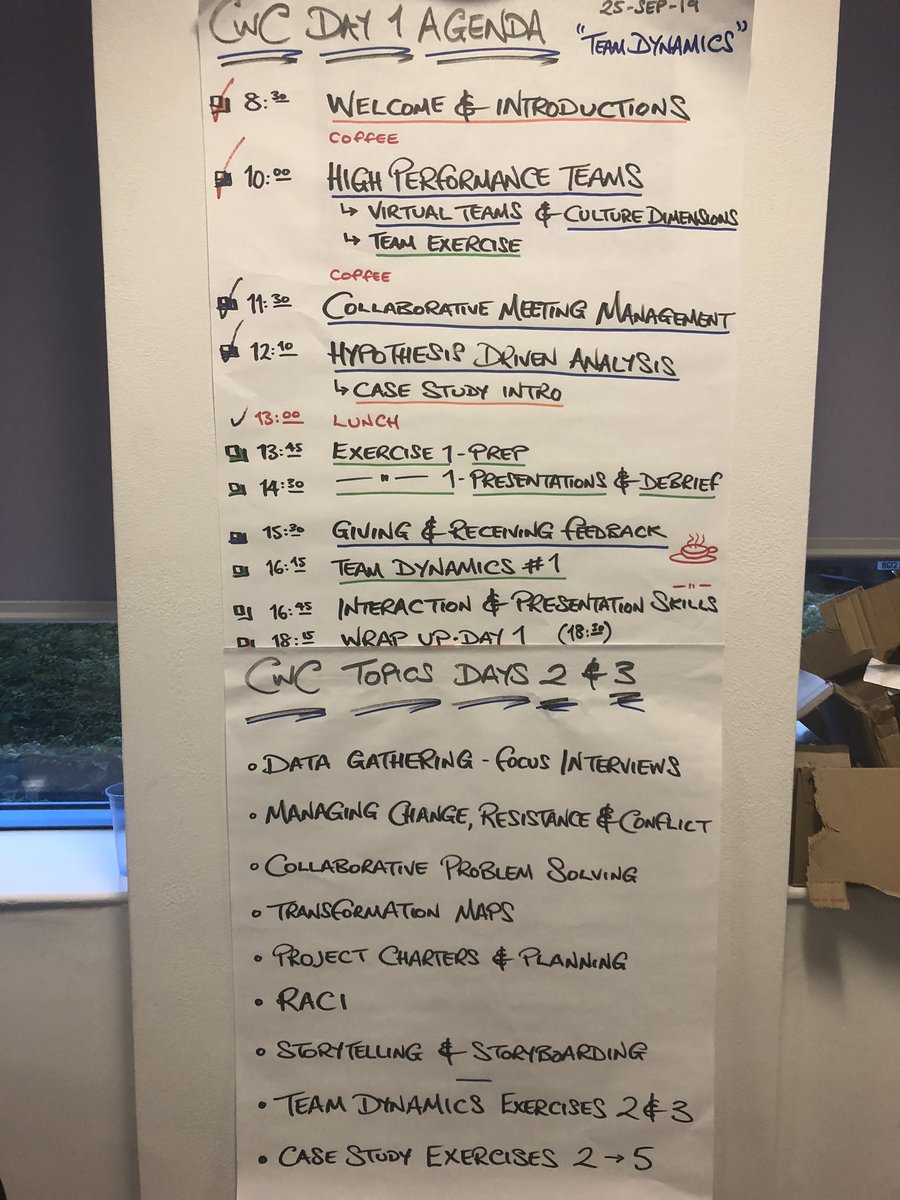 CWC DAY 1 AGENDA
25-SEP-19
"TEAM DYNAMICS"
8:30 WELCOME & INTRODUCTIONS
COFFEE
10:00 HIGH PERFORMANCE TEAMS
↳ VIRTUAL TEAMS & CULTURE DIMENSIONS
↳ TEAM EXERCISE
COFFEE
11:30 COLLABORATIVE MEETING MANAGEMENT
12:10 HYPOTHESIS DRIVEN ANALYSIS
↳ CASE STUDY INTRO
13:00 LUNCH
13:45 EXERCISE 1 - PREP
14:30 —"— 1 - PRESENTATIONS & DEBRIEF
15:30 GIVING & RECEIVING FEEDBACK
16:15 TEAM DYNAMICS #1
—"—
16:45 INTERACTION & PRESENTATION SKILLS
18:15 WRAP UP · DAY 1 (18:30)
CWC TOPICS DAYS 2 & 3
• DATA GATHERING - FOCUS INTERVIEWS
• MANAGING CHANGE, RESISTANCE & CONFLICT
• COLLABORATIVE PROBLEM SOLVING
• TRANSFORMATION MAPS
• PROJECT CHARTERS & PLANNING
• RACI
• STORYTELLING & STORYBOARDING
• TEAM DYNAMICS EXERCISES 2 & 3
• CASE STUDY EXERCISES 2 → 5